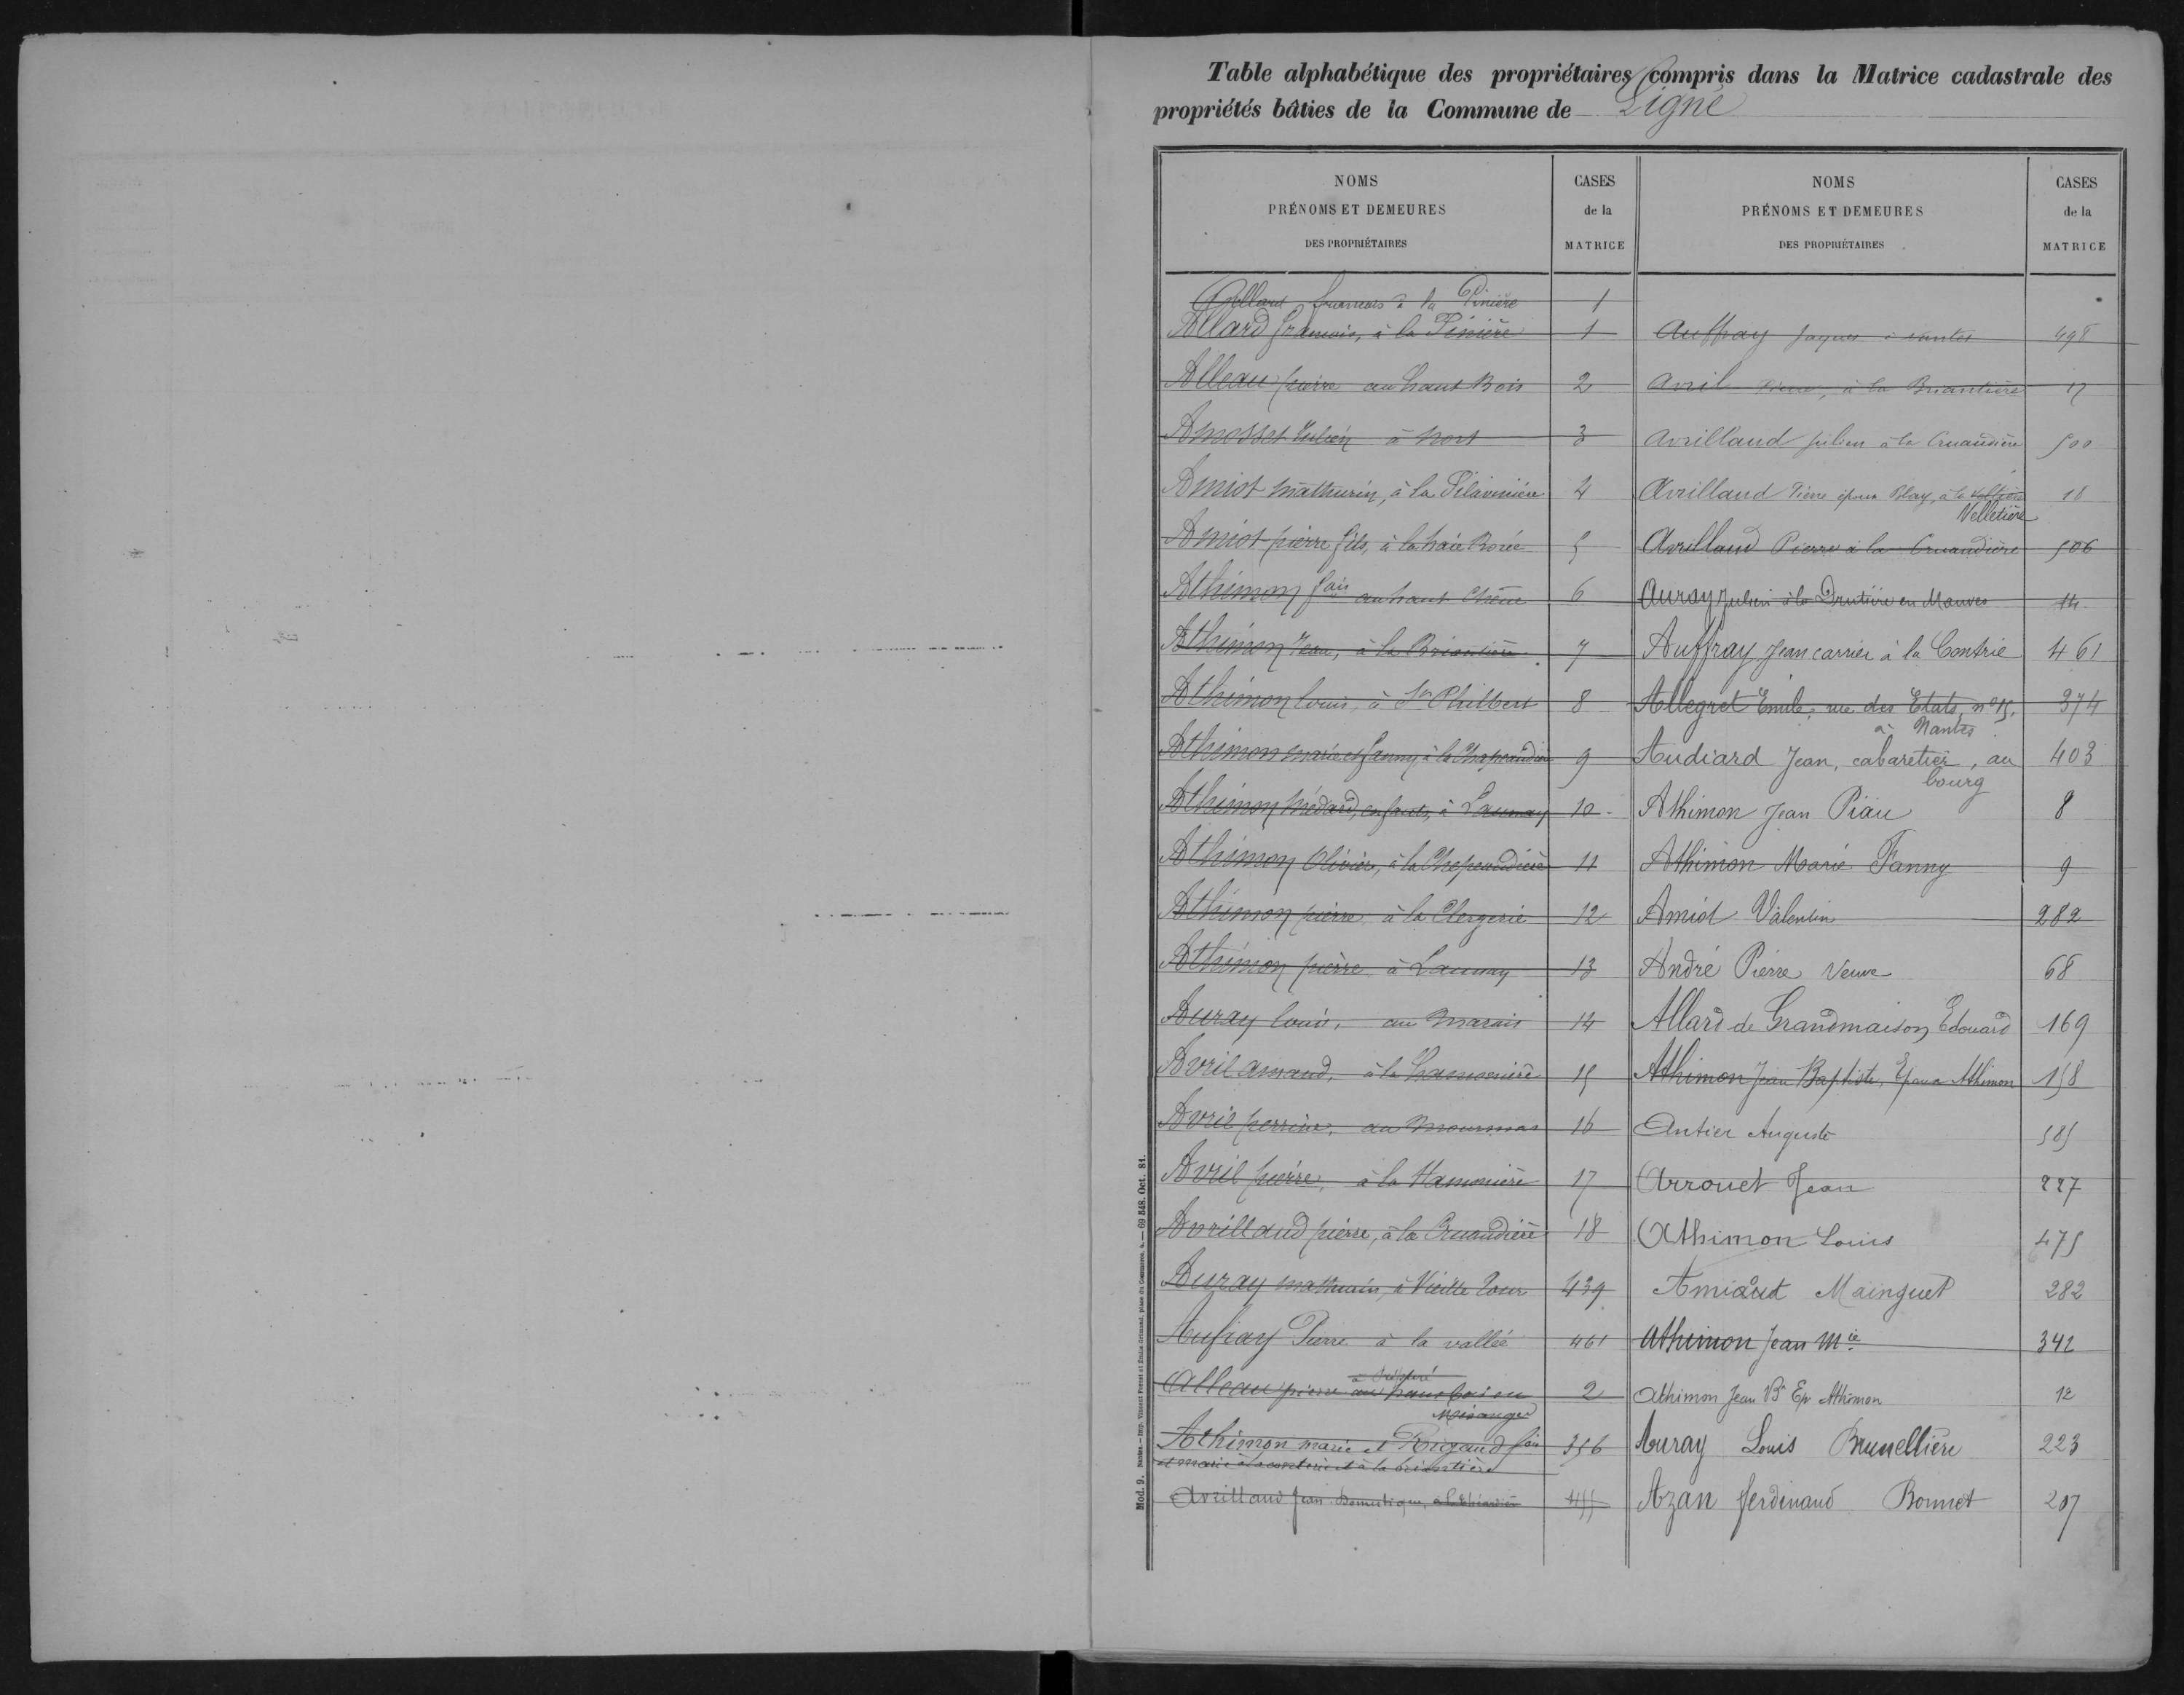 Table alphabétique des propriétaires compris dans la Matrice cadastrale des
propriétés bâties de la Commune de Ligné
NOMS
PRÉNOMS ET DEMEURES
DES PROPRIÉTAIRES
CASES
de la
MATRICE
NOMS
PRÉNOMS ET DEMEURES
DES PROPRIÉTAIRES
CASES
de la
MATRICE
Allard françois à la Pinière 1
Allard françois, à la Pinière 1
Alleau pierre au haut Bois 2
Amosset Julien à nort 3
Amiot mathurin, à la Pilavinière 4
Amiot pierre fils, à la haie Borée 5
Athimon fois au haut Chêne 6
Athimon Jean, à la Briantière 7
Athimon louis, à St Philbert 8
Athimon marie et fanny, à la Chapeaudière 9
Athimon médard, enfants, à Launay 10
Athimon Olivier, à la Chepeaudière 11
Athimon pierre à la Clergerie 12
Athimon pierre à Launay 13
Auray louis, au marais 14
Avril armand, à la hamonière 15
Avril perrine, au 16
Avril pierre, à la Hamonière 17
Avrillaud pierre, à la Cruaudière 18
Auray mathurin, à Vieille Cour 439
Aufray Pierre à la vallée 461
Alleau pierre au haut bois en 2
Mésanger
Athimon marie et Rigaud fois 356
et marie à la contrie et à la briantière
Avrillaud Jean Domestique, à 455
Auffray Jaques à Nantes 498
Avril Pierre, à la Briantière 17
Avrillaud julien à la Cruaudière 500
Avrillaud Pierre époux Blay, à la 18
Velletière
Avrillaud Pierre à la Cruaudière 506
Auray Julien à la Drutière en Mauves 14
Auffray Jean carrier à la Contrie 461
Allegret Emile, rue des Etats, n° 15, 374
à Nantes
Audiard Jean, cabaretier, au 403
bourg
Athimon Jean Piau 8
Athimon Marie Fanny 9
Amiot Valentin 282
André Pierre Veuve 68
Allard de Grandmaison Edouard 169
Athimon Jean Baptiste, Epoux Athimon 158
Antier Auguste 585
Arrouet Jean 227
Athimon Louis 475
Amiaut Mainguet 282
Athimon Jean Mie 342
Athimon Jean Bte Ep Athimon 12
Auray Louis Brunellière 223
Azan ferdinand Bonnet 207
Mod. 9. Nantes.—Imp. Vincent Forest et Émile Grimaud, place du Commerce, 4.—69 848. Oct. 81.